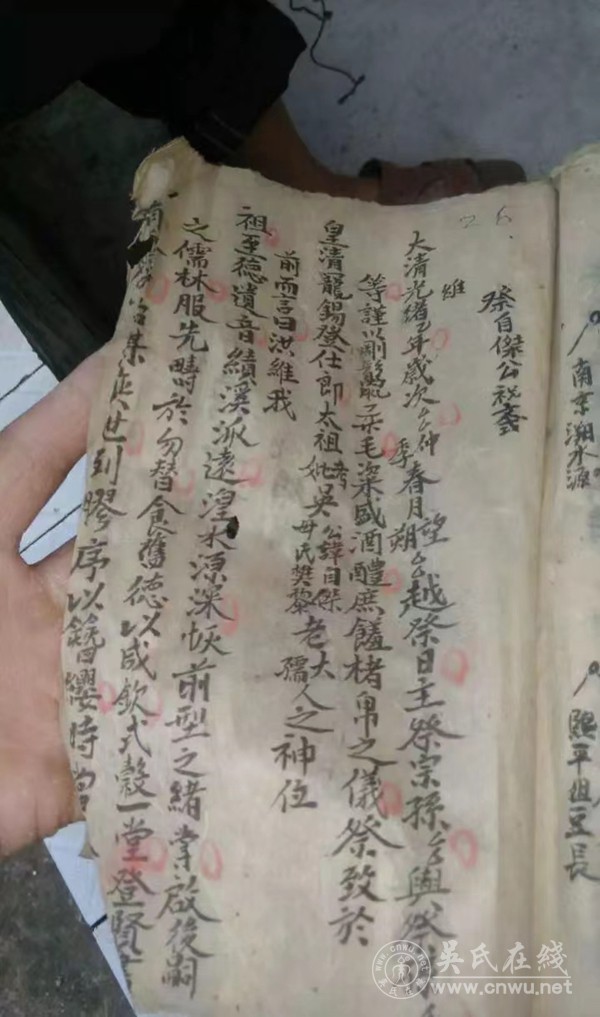 南京溯水源
熙平俎豆長
26.
祭自傑公祝文
維
大清光緒年歲次仲季春月望朔越祭日主祭宗孫與祭
等謹以剛鬣柔毛粢盛酒醴庶饈楮帛之儀祭致於
皇清寵錫登仕郎太祖考妣吳公諱自傑母氏樊黎老大孺人之神位
前而言曰洪維我
祖至德遺音績溪派遠湟水源深恢前型之緒業啟後嗣
之儒林服先疇於勿替食舊德以咸欽式穀一堂登賢書
世列膠序以簪纓時
吳氏在线
www.cnwu.net